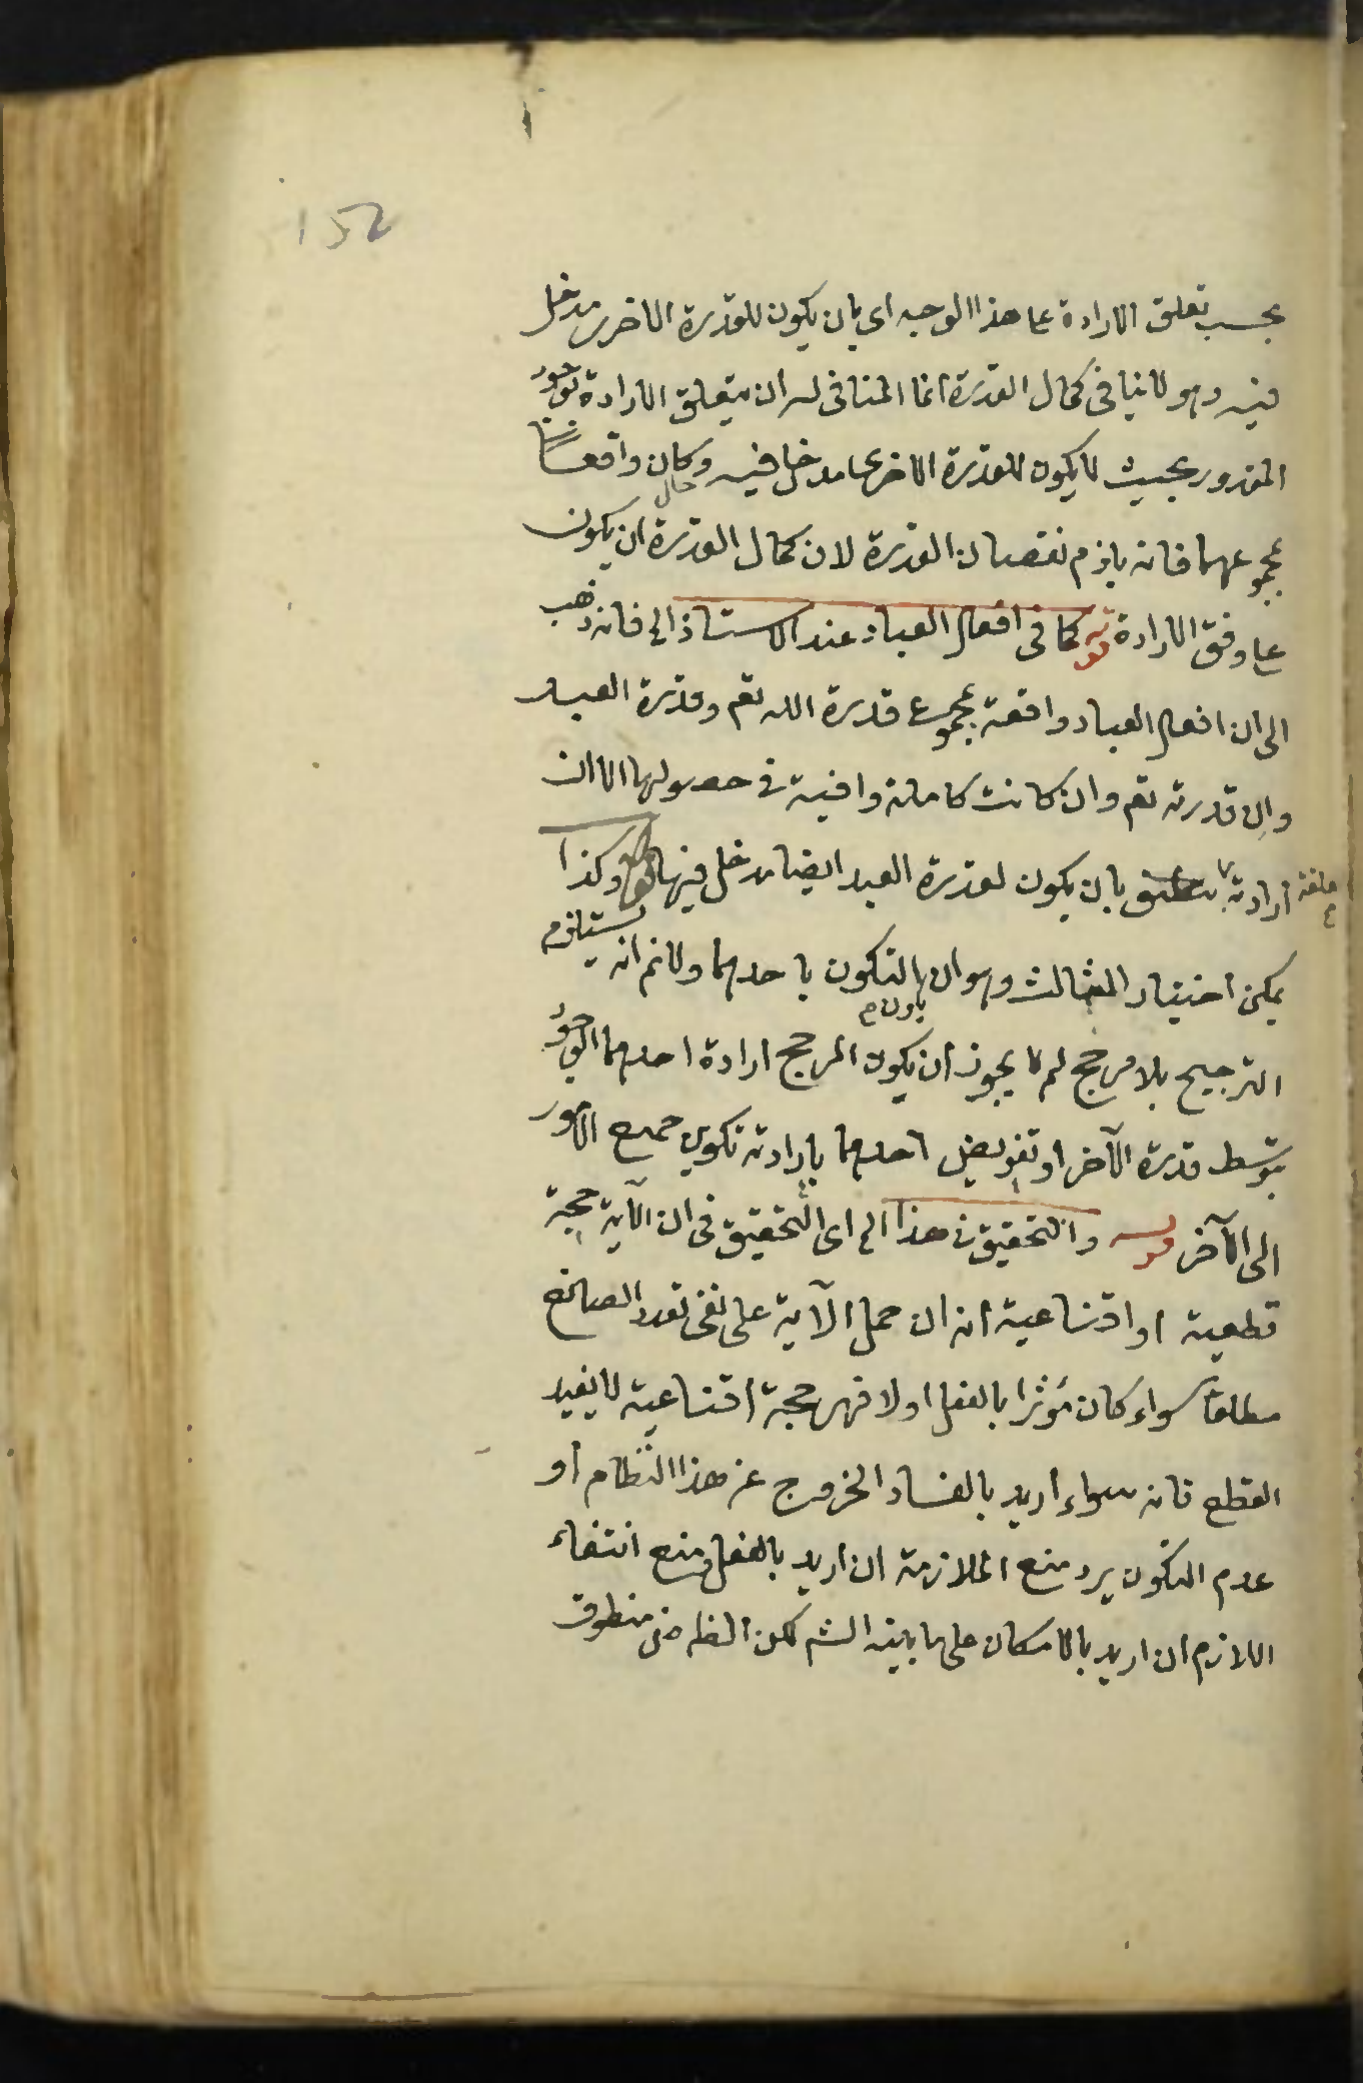 152
بحسب تعلق الارادة على هذا الوجه اى بان يكون للقدرة الاخرى مدخل
فيه وهو لا ينافى كمال القدرة انما المنافى له ان يتعلق الارادة بوجود
المقدور بحيث لا يكون للقدرة الاخرى مدخل فيه وكان واقعا
بمجموعهما فانه يلزم نقصان القدرة لان كمال القدرة ان يكون
على وفق الارادة قوله كما فى افعال العباد عند الاستاذ الخ فانه ذهب
الى ان افعال العباد واقعة بمجموع قدرة الله تعم وقدرة العبد
وان قدرته تعم وان كانت كاملة وافية فى حصولها الا ان
ارادته متعلقة بان يكون لقدرة العبد ايضا مدخل فيها وكذا
يمكن اختيار الثالث وهو ان التكون باحدهما ولانم انه يستلزم
الترجيح بلا مرجح لم لا يجوز ان يكون المرجح ارادة احدهما الوجود
بتوسط قدرة الآخر او تفويض احدهما بارادته تكوين جميع الامور
الى الآخر قوله والتحقيق فى هذا الخ اى التحقيق فى ان الآية حجة
قطعية او اقناعية انه ان حمل الآية على نفى تعدد الصانع
مطلقا سواء كان مؤثرا بالفعل اولا فهى حجة اقناعية لا يفيد
القطع فانه سواء اريد بالفساد الخروج عن هذا النظام او
عدم التكون يرد منع الملازمة ان اريد بالفعل ومنع انتفاء
اللازم ان اريد بالامكان على ما بينه الشم لكن الظ من منطوق